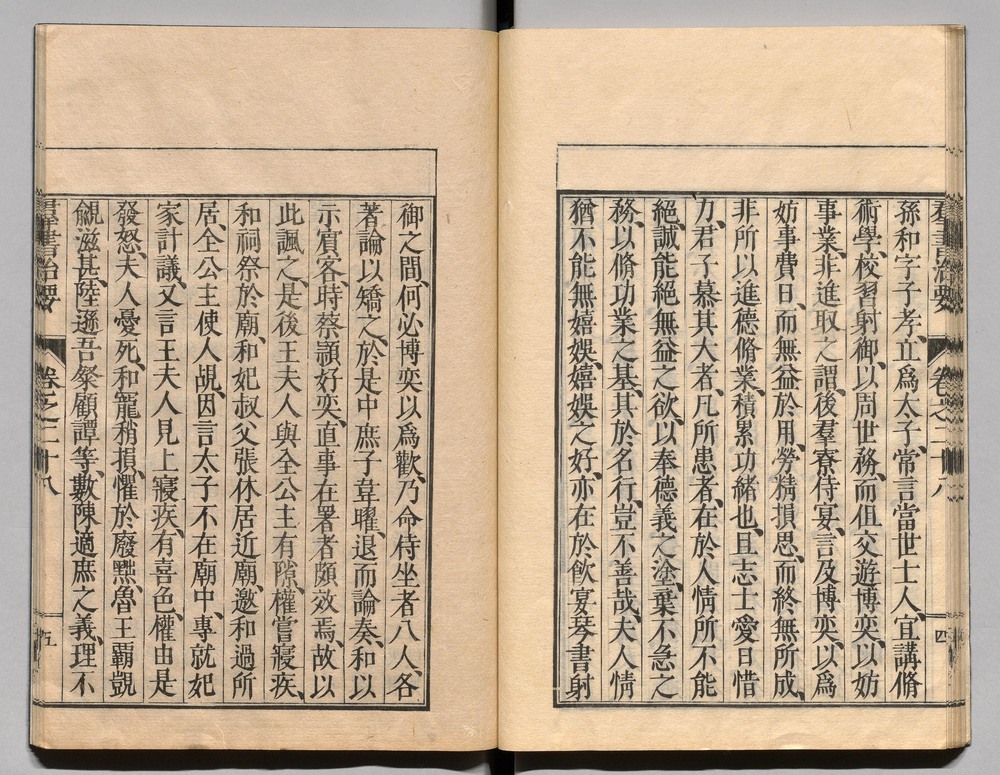 羣書治要 卷之二十八 四
孫和字子孝、立爲太子、常言當世士人、宜講脩
術學、校習射御、以周世務、而但交遊博奕、以妨
事業、非進取之謂、後羣寮侍宴、言及博奕、以爲
妨事費日、而無益於用、勞精損思、而終無所成、
非所以進德脩業、積累功緒也、且志士愛日惜
力、君子慕其大者、凡所患者、在於人情所不能
絕、誠能絕無益之欲、以奉德義之塗、棄不急之
務、以脩功業之基、其於名行、豈不善哉、夫人情
猶不能無嬉娛、嬉娛之好、亦在於飮宴琴書射
御之間、何必博奕以爲歡、乃命侍坐者八人、各
著論以矯之、於是中庶子韋曜、退而論奏、和以
示賓客、時蔡穎好奕、直事在署者頗效焉、故以
此諷之、是後王夫人與全公主有隙、權嘗寢疾、
和祠祭於廟、和妃叔父張休居近廟、邀和過所
居、全公主使人覘、因言太子不在廟中、專就妃
家計議、又言王夫人見上寢疾、有喜色、權由是
發怒、夫人憂死、和寵稍損、懼於廢黜、魯王霸覬
覦滋甚、陸遜吾粲顧譚等、數陳適庶之義、理不
羣書治要 卷之二十八 五